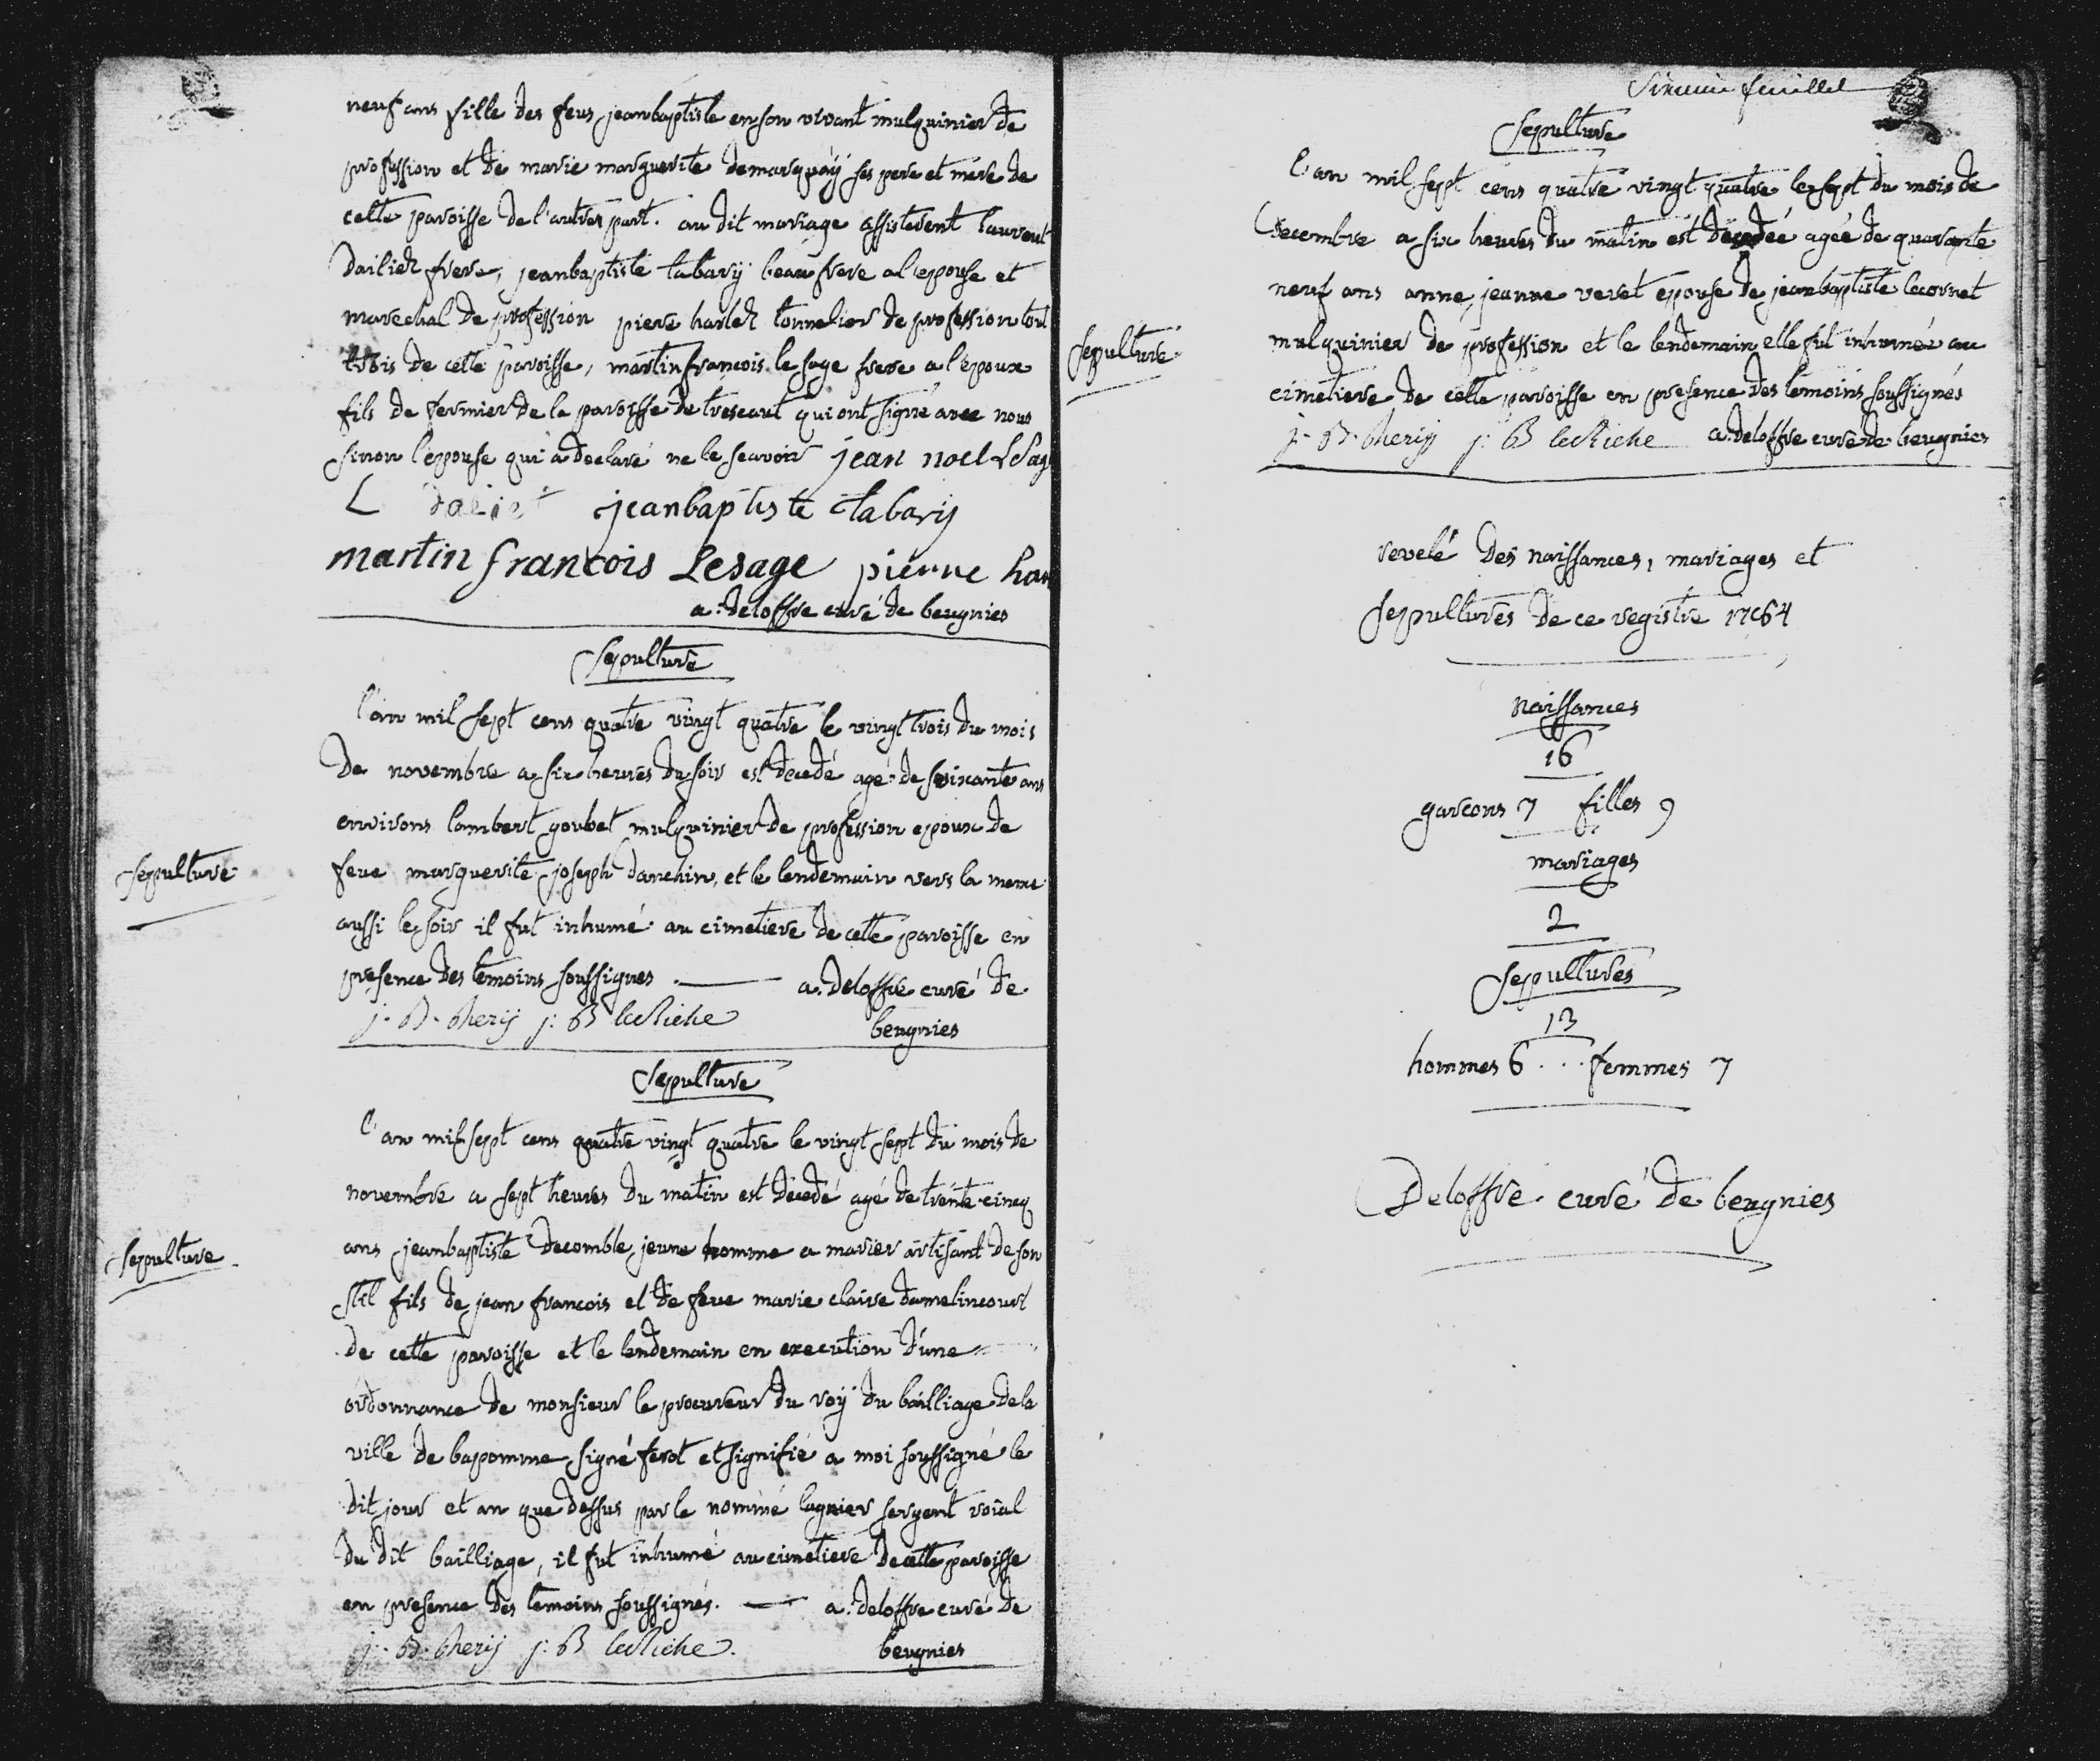 neuf ans fille des feus jeanbaptiste en son vivant mulquinier de
profession et de marie marguerite demarquáÿ ses pere et mère de
cette paroisse de l'autre part. au dit mariage assisterent laurent
dailiez frere, jeanbaptiste tabarÿ beau frere a l'epouse et
marechal de profession piere harlez tonnelier de profession tout
trois de cette paroisse, martin francois le sage frere a l'epoux
fils de fermier de la paroisse de trescaut qui ont signé avec nous
sinon l'epouse qui a declaré ne le scavoir jean noel lesag
L daliet jeanbaptiste tabarÿ
martin francois Lesage pierre har
a. deloffre curé de beugnies
sepulture
l'an mil sept cens quatre vingt quatre le vingt trois du mois
de novembre a six heures du soir est decedé agé de soixante ans
environs lambert goubet mulquinier de profession epoux de
sepulture
feue marguerite joseph danchin, et le lendemain vers la meme
aussi le soir il fut inhumé au cimetiere de cette paroisse en
presence des temoins soussignes a. deloffre curé de
j. B. therÿ j: B leRiche beugnies
sepulture
l'an mil sept cens quatre vingt quatre le vingt sept du mois de
novembre a sept heures du matin est décedé agé de trente cincq
sepulture
ans jeanbaptiste decomble, jeune homme a marier artisant de son
stil fils de jean francois et de feue marie claire damelincourt
de cette paroisse et le lendemain en execution d'une
ordonnance de monsieur le procureur du roÿ du bailliage de la
ville de bapomme signé ferot et signifié a moi soussigné le
dit jour et an que dessus par le nommé lagnier sergent roial
du dit bailliage, il fut inhumé au cimetiere de cette paroisse
en presence des temoins soussignés. a. deloffre curé de
j. B. therÿ j: B leRiche. beugnies
Sixieme feuillet
sepulture
l'an mil sept cens quatre vingt quatre le sept du mois de
decembre a six heures du matin est decedée agée de quarante
neuf ans anne jeanne veret epouse de jeanbaptiste lecornet
sepulture
mulquinier de profession et le lendemain elle fut inhumée au
cimetiere de cette paroisse en presence des temoins soussignés
j. B. therÿ j: B leRiche a. deloffre curé de beugnies
revelé des naissances, mariages et
sepultures de ce registre 1784
naissances
16
garcons 7 filles 9
mariages
2
sepultures
13
hommes 6 ... femmes 7
Deloffre curé de beugnies